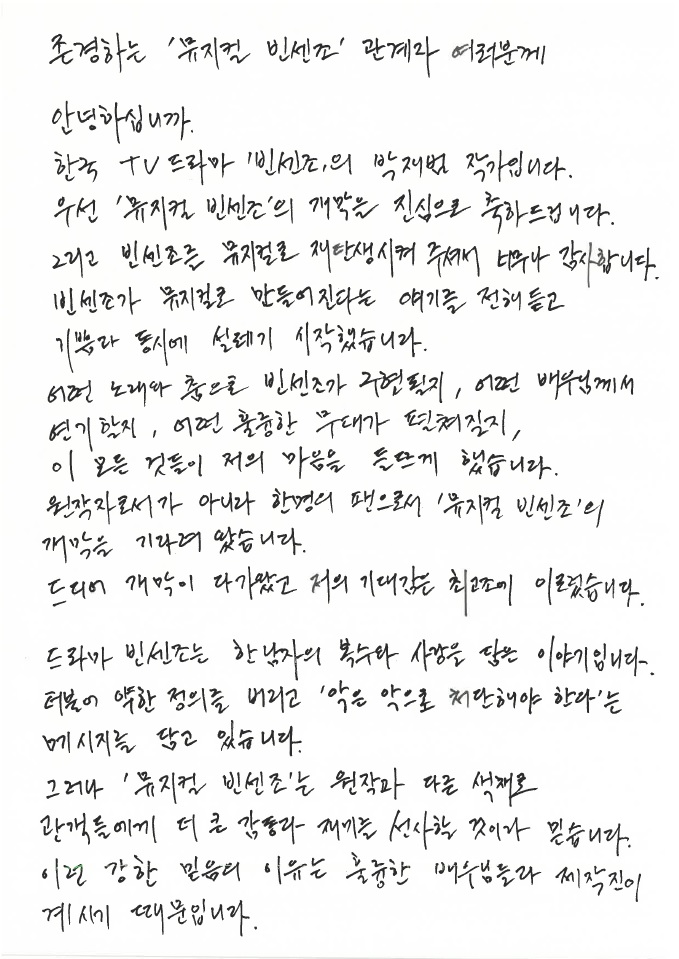 존경하는 '뮤지컬 빈센조' 관계자 여러분께
안녕하십니까.
한국 TV 드라마 '빈센조'의 박재범 작가입니다.
우선 '뮤지컬 빈센조'의 개막을 진심으로 축하드립니다.
그리고 빈센조를 뮤지컬로 재탄생시켜 주셔서 너무나 감사합니다.
빈센조가 뮤지컬로 만들어진다는 얘기를 전해 듣고
기쁨과 동시에 설레기 시작했습니다.
어떤 노래와 춤으로 빈센조가 구현될지, 어떤 배우님께서
연기할지, 어떤 훌륭한 무대가 펼쳐질지,
이 모든 것들이 저의 마음을 들뜨게 했습니다.
원작자로서가 아니라 한명의 팬으로서 '뮤지컬 빈센조'의
개막을 기다려 왔습니다.
드디어 개막이 다가왔고 저의 기대감은 최고조에 이르렀습니다.
드라마 빈센조는 한 남자의 복수와 사랑을 담은 이야기입니다.
더불어 약한 정의를 버리고 '악은 악으로 처단해야 한다'는
메시지를 담고 있습니다.
그러나 '뮤지컬 빈센조'는 원작과 다른 색채로
관객들에게 더 큰 감동과 재미를 선사할 것이라 믿습니다.
이런 강한 믿음의 이유는 훌륭한 배우님들과 제작진이
계시기 때문입니다.